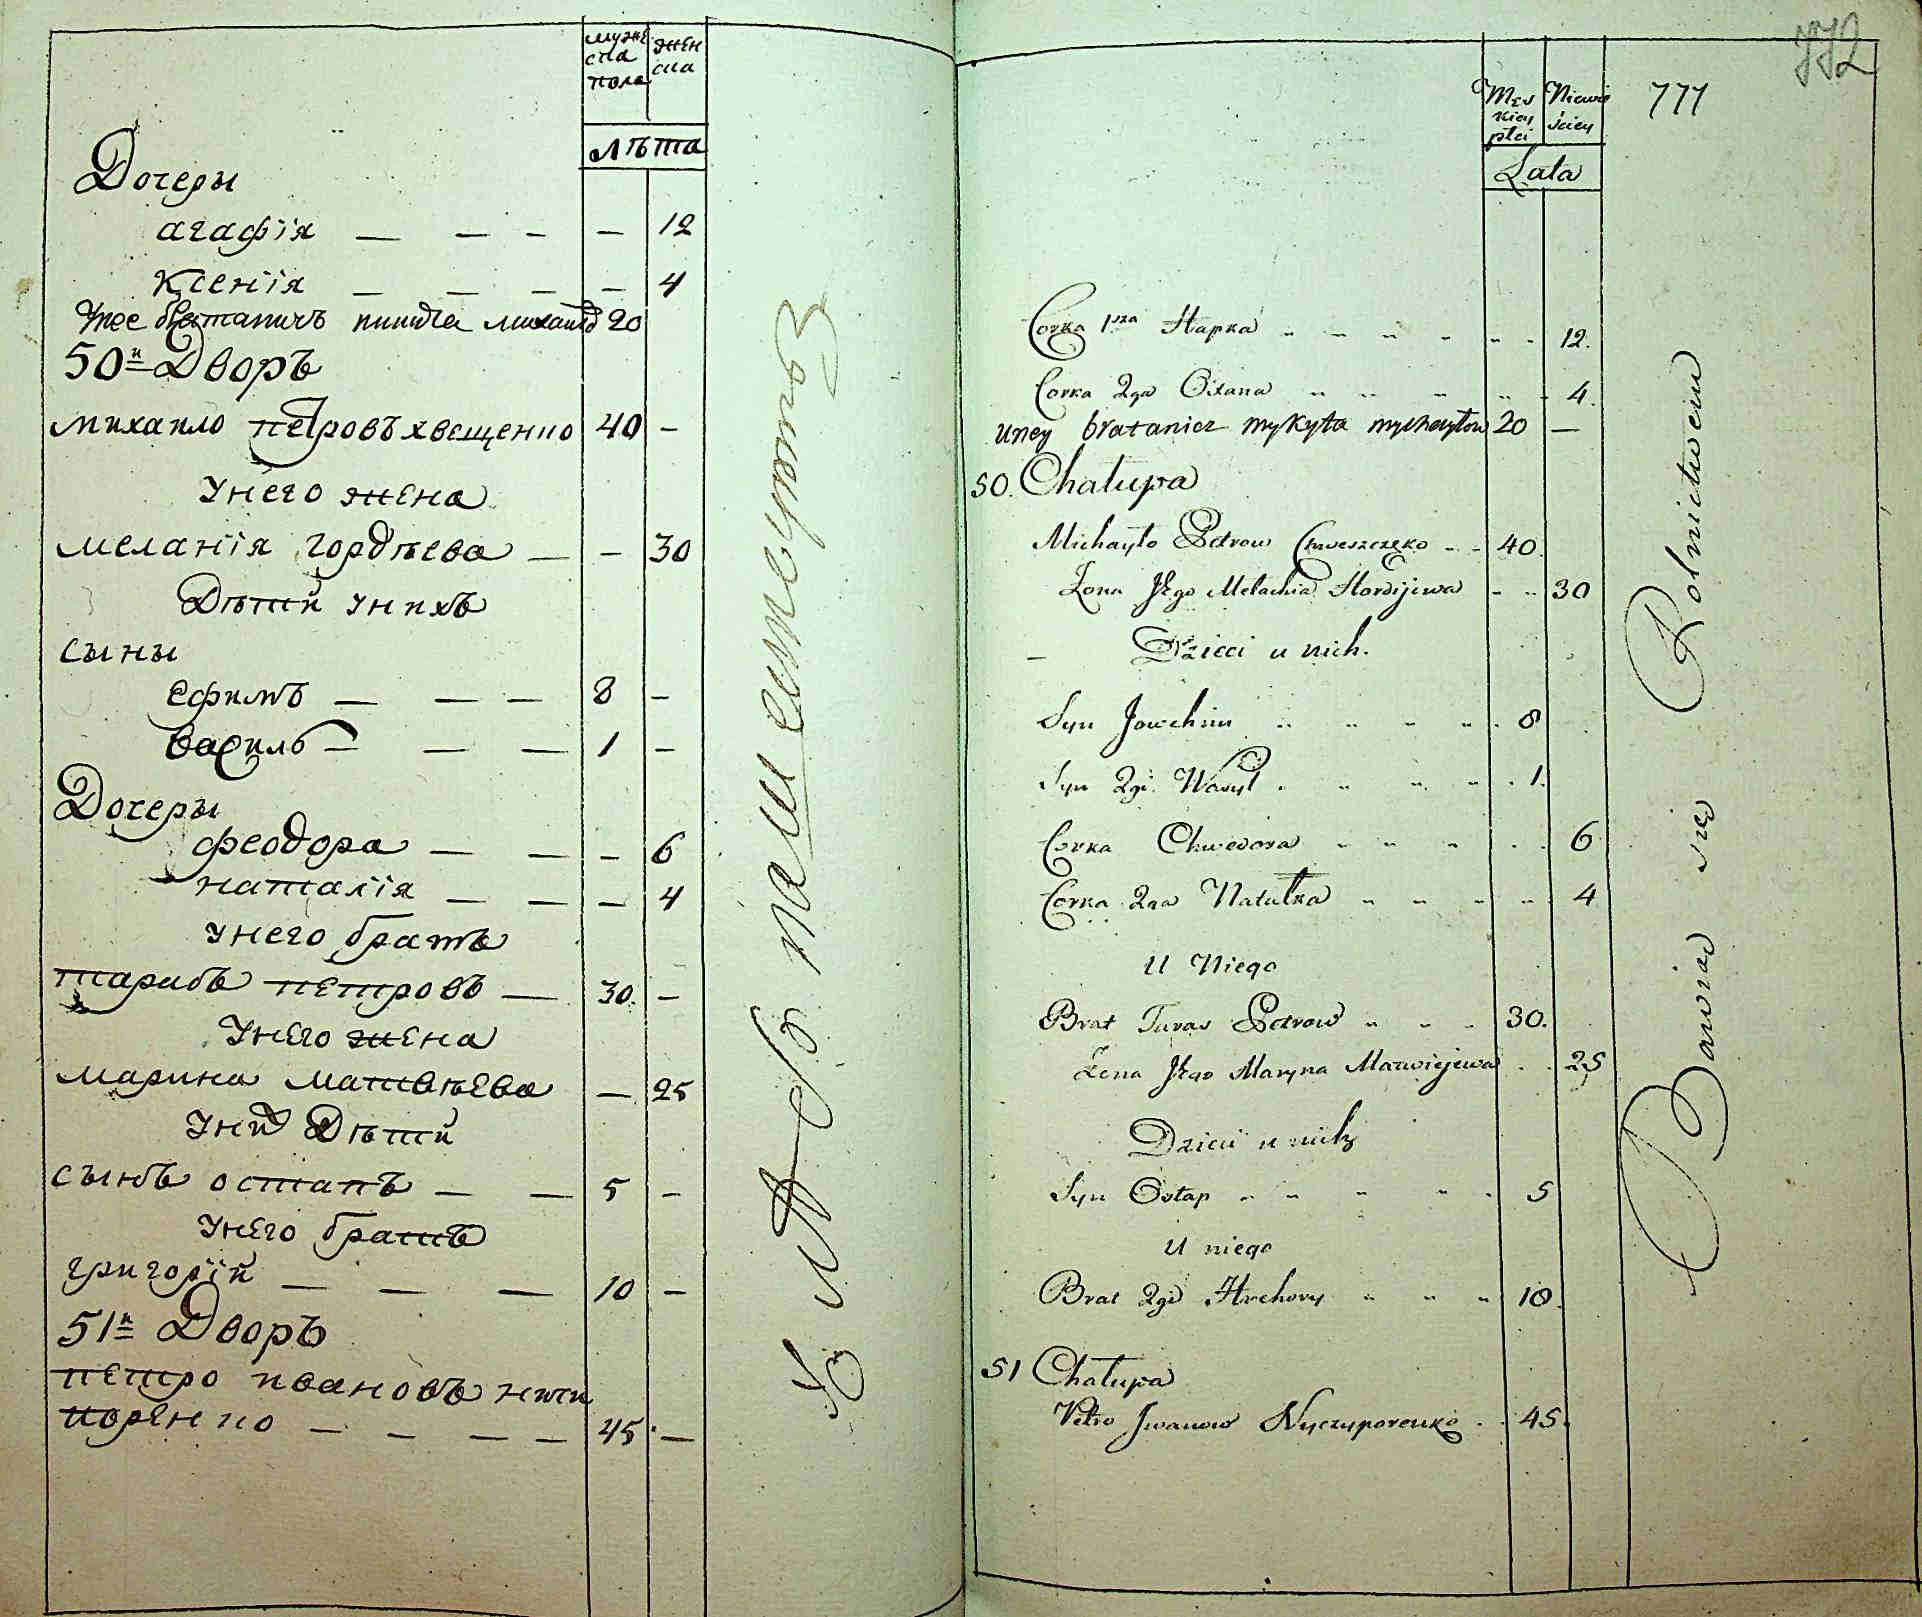 муже
ска
пола
жен
ска
лѣта
Дочеры
агафїя — — — — 12
Ксенїя — — — — 4
братаничъ никита михаило 20
50й Дворъ
михаило петровъ хвещенко 40 —
унего жена
меланїя гордѣева — — 30
Дѣтей унихъ
сыны
ефимъ — — — 8 —
василь — — — 1 —
Дочеры
феодора — — — 6
наталїя — — — 4
унего братъ
тарасъ петровъ — 30 —
Унего жена
марина матвѣева — 25
Уних Дѣтей
сынъ остапъ — — 5 —
унего братъ
григорїй — — — 10 —
51й Дворъ
петро ивановъ ничи
поренко — — — — 45 —
Męs
kiey
płci
Niewie
ściey
Lata
777
772
Corka 1sza Hapka 12.
Corka 2ga Oxana 4.
uney bratanicz mykyta mychayłow 20 —
50. Chałupa
Michayło Petrow Chweszczeko 40.
Żona Jego Melachia Hordijewa 30
— Dzieci u nich.
Syn Jowchim 8
Syn 2gi Wasyl 1.
Corka Chwedora 6
Corka 2ga Natałka 4
U Niego
Brat Taras Petrow 30.
Żona Jego Maryna Matwiejewa 25
Dzieci u nich
Syn Ostap 5
U niego
Brat 2gi Hrehory 10.
51 Chałupa
Petro Iwanow Nyczyporenko 45.
Bawią się Rolnictwem